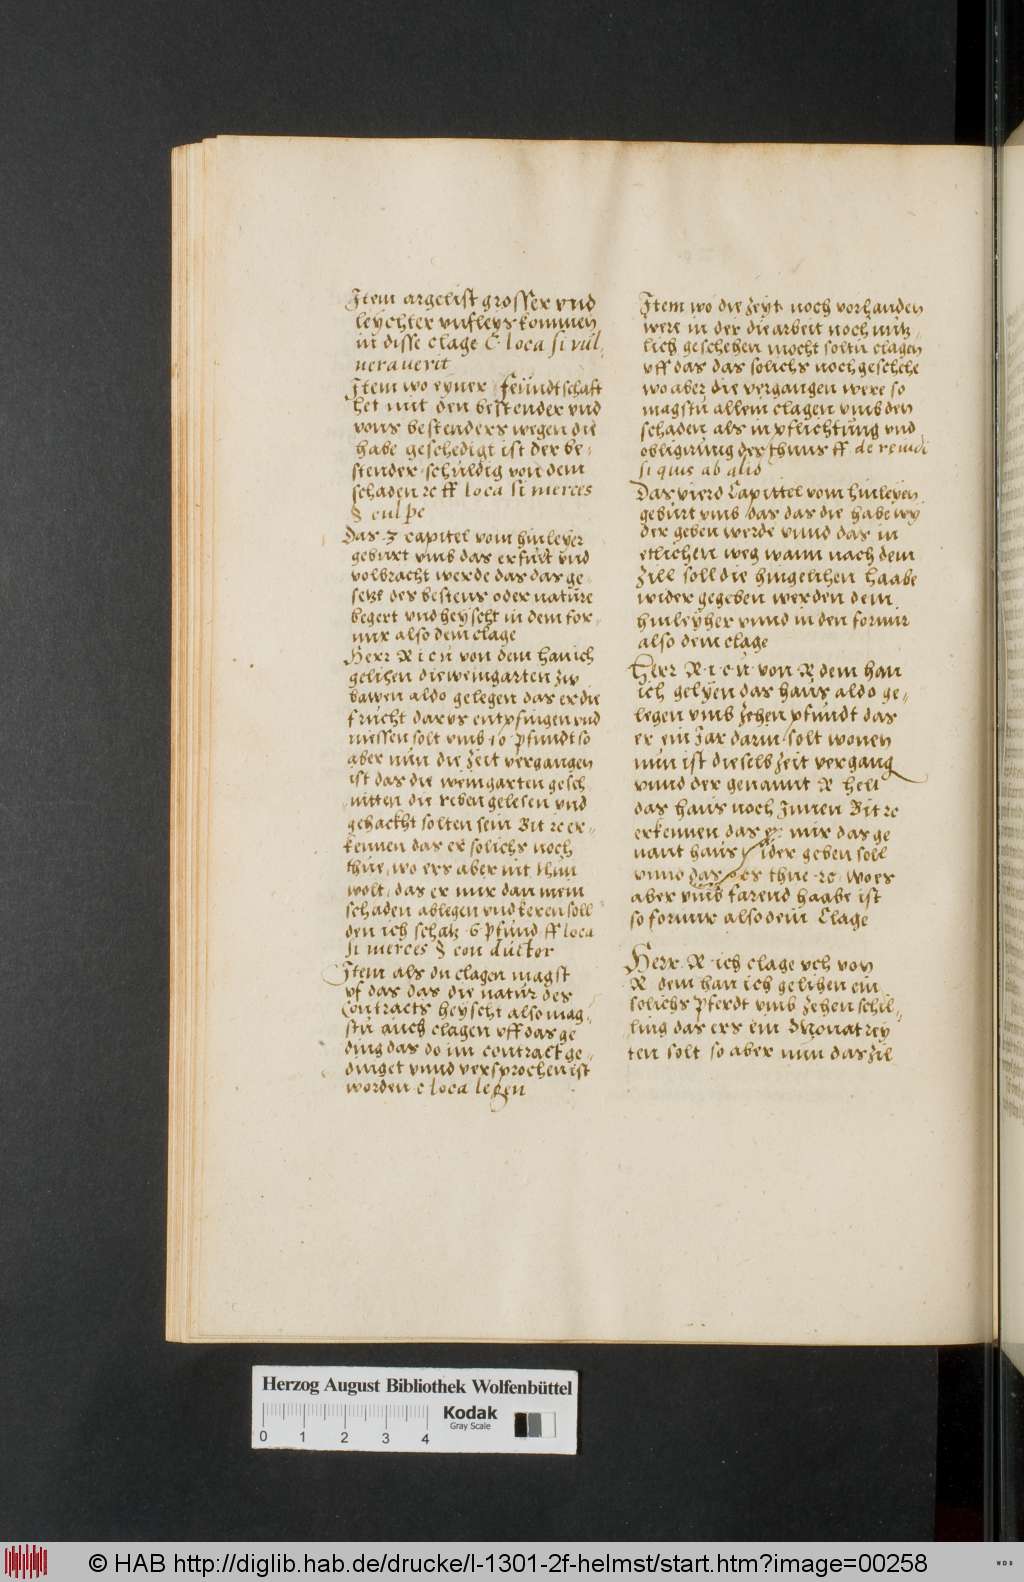 Item argelist grosser vnd
leychter vnfleys kommen
in disse clage C. loca si vul-
nerauerit
Item wo eyner feündtschaft
het mit den bestender vnd
vons bestenders wegen die
habe geschedigt ist der be-
stender schuldig von dem
schaden ꝛc ff loca si merces
§ culpe
Das 3 capitel vom hinleyer
geburt vmb das erfurt vnd
volbracht werde das das ge
setzt des bestens oder nature
begert vnd heyscht in dem for
mir also dem clage
Herr R i c ü von dem han ich
gelihen die weingarten zw
bawen aldo gelegen das er die
frücht darus entpfingen vnd
niessen solt vmb 10 pfundt so
aber nün die zeit vergangen
ist das die weingarten gesch
nitten die reben gelesen vnd
gehackht solten sein Bit ꝛc er-
kennen das er solichs noch
thue, wo ers aber nit thun
wolt, das er mir dan mein
schaden ablegen vnd keren soll
den ich schatz 6 pfund ff loca
si merces § conductor
Item als du clagen magst
vf das das die natur des
Contracts heyscht also mag-
stu auch clagen vff das ge
ding das do im contract ge-
dinget vnnd versprochen ist
worden c loca legen
Item wo die zeyt noch vorhanden
were in der die arbeit noch nutz
lich geschehen mocht soltu clagen
vff das das solichs noch geschehe
wo aber die vergangen were so
magstu allein clagen vmb den
schaden als in pflichtung vnd
obligirung des thuns ff de reiudi
si quis ab alio
Das vierd Capittel vom hinleyen
geburt vmb das das die habe wy
der geben werde vnnd das in
etlichen weg wann nach dem
zill soll die hingelihen haabe
wider gegeben werden dem
hinleyher vnnd in den formir
also dem clage
Herr R i c ü von R dem han
ich gelyen das haus aldo ge-
legen vmb zehen pfundt das
er ein Jar darin solt wonen
nün ist dieselb zeit vergang
vnnd der genannt R helt
das haus noch Innen Bit ꝛc
erkennen das er mir das ge
nant haus wider geben soll
vnnd das ers thue ꝛc wo es
aber vmb farend haabe ist
so formir also dein Clage
Herr R ich clage vch von
R dem han ich gelihen ein
solichs pferdt vmb zehen schil-
ling das ers ein Monat rey
ten solt so aber nun das zil
Herzog August Bibliothek Wolfenbüttel
0 1 2 3 4
Kodak
Gray Scale
© HAB http://diglib.hab.de/drucke/l-1301-2f-helmst/start.htm?image=00258